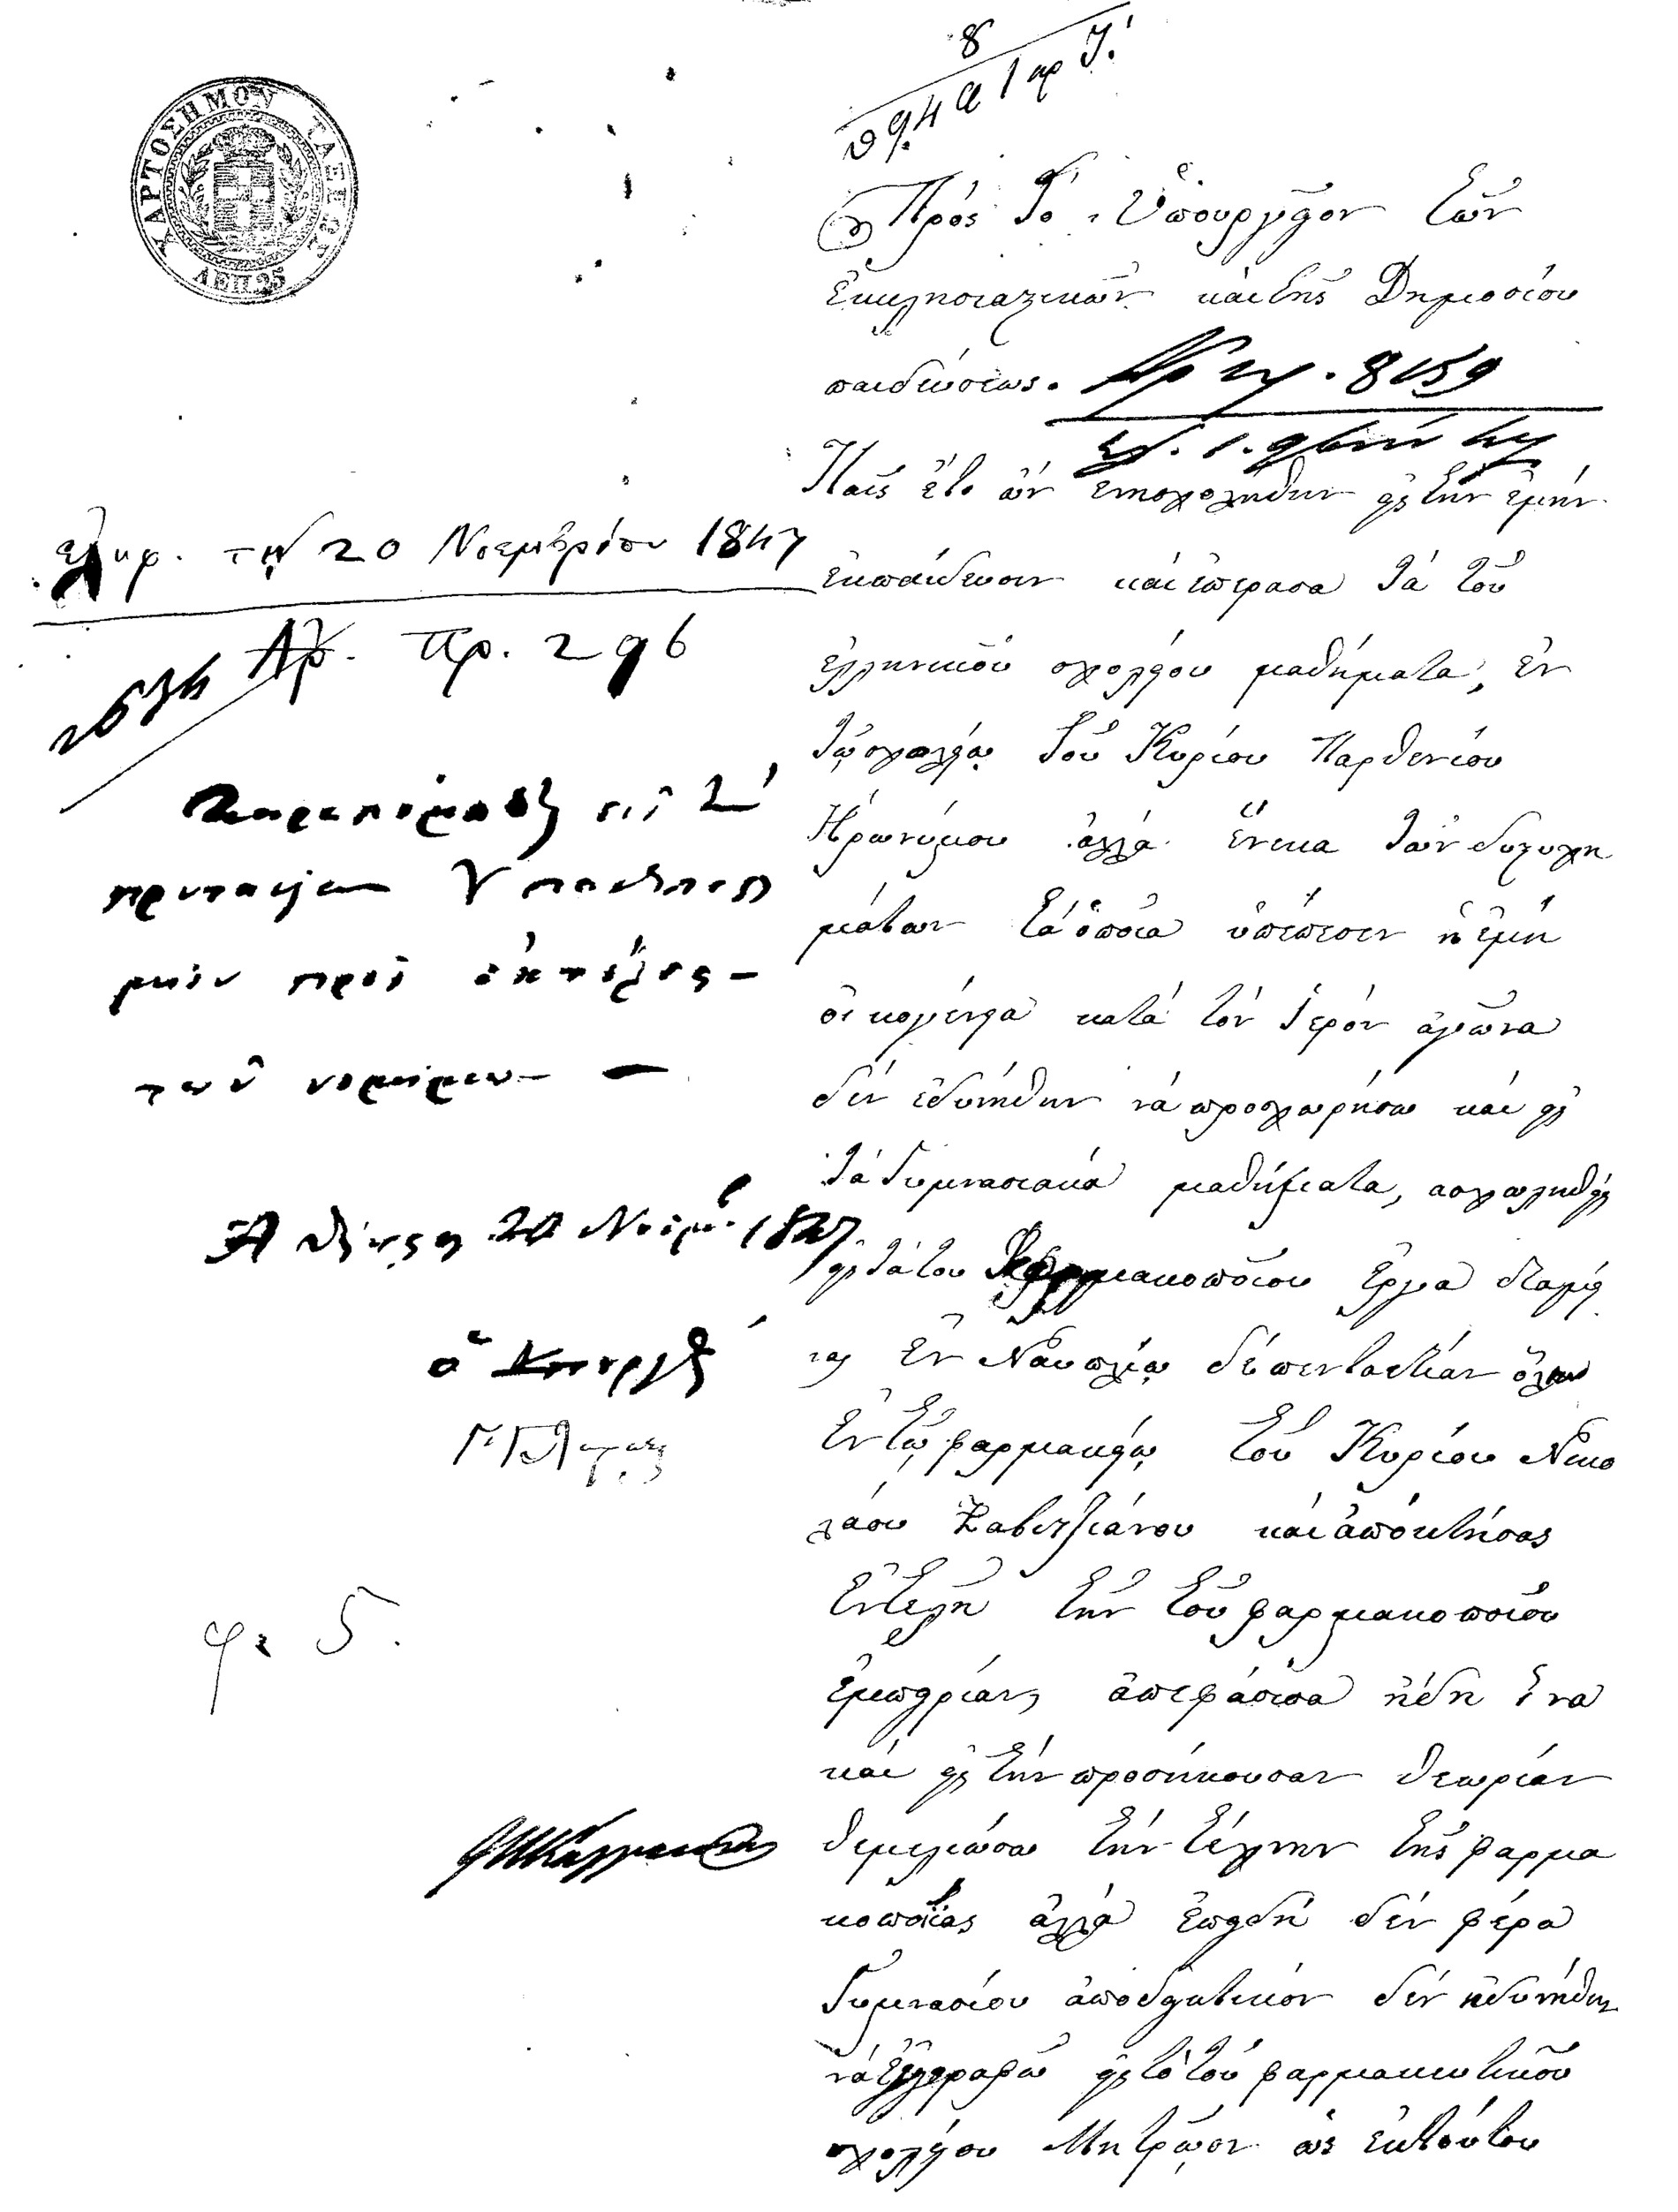 ΧΑΡΤΟΣΗΜΟΝ ΤΑΞΕΩΣ
ΛΕΠ 25
8
Πρός Τό Ὑπουργεῖον τῶν
Ἐκκλησιαστικῶν καί τῆς Δημοσίου
παιδεύσεως.
Ἀρ. 8159
Παῖς ἔτι ὤν ἐνησχολήθην εἰς τήν ἐμήν
ἐκπαίδευσιν καί ἐπέρασα τά τοῦ
ἑλληνικοῦ σχολείου μαθήματα, ἐν
τῷ σχολείῳ τοῦ Κυρίου Παρθενίου
Ἱερωνύμου ἀλλά ἕνεκα τῶν δυςυχη
μάτων τά ὁποῖα ὑπέπεσεν ἡ ἐμή
οἰκογένεια κατά τόν ἱερόν ἀγῶνα
δέν ἐδυνήθην νά προσχωρήσω καί εἰς
τά Γυμνασιακά μαθήματα, ασχωληθείς
εἰς τά του Φαρμακοποιου ἔργα διαμεί
νας ἐν Ναυπλίῳ δέ πενταετίαν ὅλην
ἐν τῷ φαρμακείῳ τοῦ Κυρίου Νικο
λάου Ζαβιτζιάνου καί ἀποκτήσας
ἐντελῆ τήν τοῦ φαρμακοποιοῦ
ἐμπειρίαν, ἀπεφάσισα ἤδη ἵνα
καί εἰς τήν προσήκουσαν θεωρίαν
θεμελιώσω τήν τέχνην τῆς φαρμα
κοποιίας ἀλλά ἐπειδή δέν φέρω
Γυμνασίου ἀποδεικτικόν δέν ἠδυνήθην
νά ἐγγραφῶ εἰς τό τοῦ φαρμακευτικοῦ
σχολείου Μητρῷον ὡς ἐκ τούτου
ἐλήφ. τῇ 20 Νοεμβρίου 1847
Ἀρ. Πρ. 296
Παραπέμπεται εἰς τά
πρυτανείαν
πρός
τῶν νομίμων
Ἀθήνησι 20 Νοεμ. 1847.
ὁ Ὑπουργός
φ. 5.